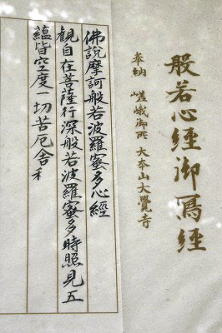 般若心経御写経
奉納 嵯峨御所 大本山大覺寺
佛説摩訶般若波羅蜜多心經
観自在菩薩行深般若波羅蜜多時照見五
蘊皆空度一切苦厄舎利